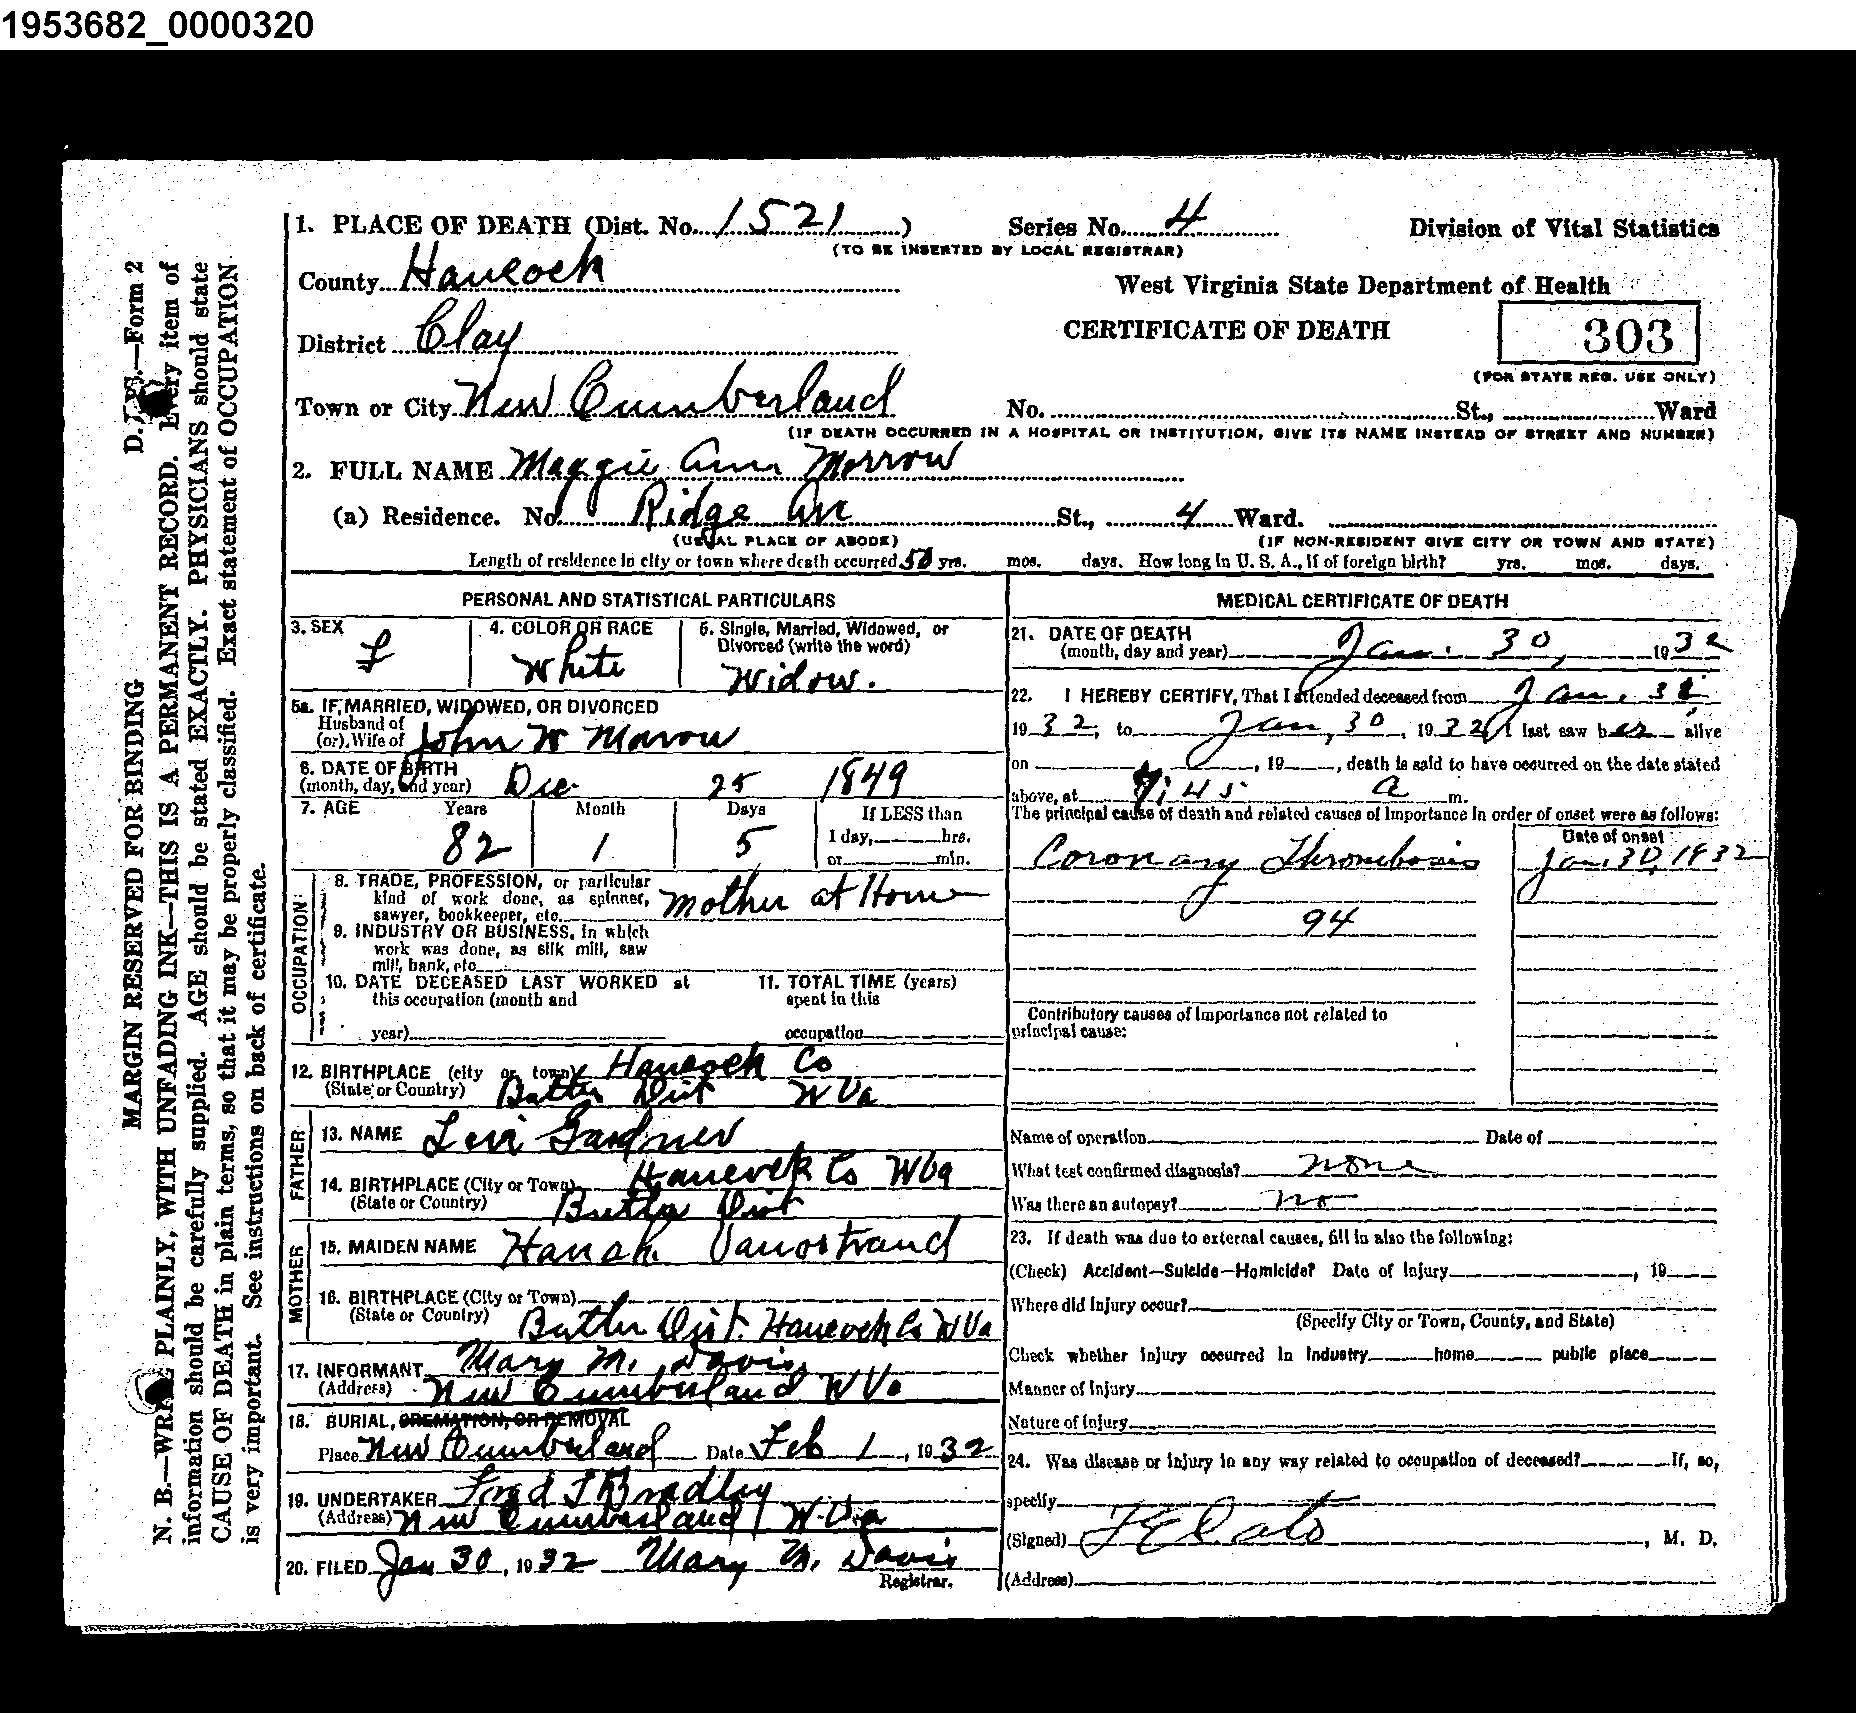 1953682_0000320
1. PLACE OF DEATH (Dist. No. 1521) Series No. 4 Division of Vital Statistics
(TO BE INSERTED BY LOCAL REGISTRAR)
County Hancock West Virginia State Department of Health
District Clay CERTIFICATE OF DEATH 303
(FOR STATE REG. USE ONLY)
Town or City New Cumberland No. St., Ward
(IF DEATH OCCURRED IN A HOSPITAL OR INSTITUTION, GIVE ITS NAME INSTEAD OF STREET AND NUMBER)
2. FULL NAME Maggie Ann Morrow
(a) Residence. No. Ridge Ave St., 4 Ward.
(USUAL PLACE OF ABODE) (IF NON-RESIDENT GIVE CITY OR TOWN AND STATE)
Length of residence in city or town where death occurred 50 yrs. mos. days. How long in U. S. A., if of foreign birth? yrs. mos. days.
PERSONAL AND STATISTICAL PARTICULARS
3. SEX 4. COLOR OR RACE 5. Single, Married, Widowed, or
Divorced (write the word)
F White Widow.
5a. IF MARRIED, WIDOWED, OR DIVORCED
Husband of
(or) Wife of John W Marow
6. DATE OF BIRTH
(month, day, and year) Dec 25 1849
7. AGE Years Month Days If LESS than
82 1 5 1 day, hrs.
or min.
OCCUPATION
8. TRADE, PROFESSION, or particular
kind of work done, as spinner, Mother at Home
sawyer, bookkeeper, etc.
9. INDUSTRY OR BUSINESS, in which
work was done, as silk mill, saw
mill, bank, etc
10. DATE DECEASED LAST WORKED at 11. TOTAL TIME (years)
this occupation (month and spent in this
year) occupation
12. BIRTHPLACE (city or town) Hancock Co
(State or Country) Butler Dist W Va
FATHER
13. NAME Levi Gardner
14. BIRTHPLACE (City or Town) Hancock Co W Va
(State or Country) Butler Dist
MOTHER
15. MAIDEN NAME Hanah Vanostrand
16. BIRTHPLACE (City or Town)
(State or Country) Butler Dist. Hancock Co W Va
17. INFORMANT Mary M. Davis
(Address) New Cumberland W Va
18. BURIAL, CREMATION, OR REMOVAL
Place New Cumberland Date Feb 1, 1932
19. UNDERTAKER Fred T Bradley
(Address) New Cumberland W.Va
20. FILED Jan 30, 1932 Mary M. Davis
Registrar.
MEDICAL CERTIFICATE OF DEATH
21. DATE OF DEATH
(month, day and year) Jan. 30, 1932
22. I HEREBY CERTIFY, That I attended deceased from Jan.
1932, to Jan, 30, 1932 I last saw her alive
on , 19 , death is said to have occurred on the date stated
above, at :45 a m.
The principal cause of death and related causes of importance in order of onset were as follows:
Date of onset
Coronary Thrombosis Jan. 30, 1932
94
Contributory causes of importance not related to
principal cause:
Name of operation Date of
What test confirmed diagnosis? none
Was there an autopsy? no
23. If death was due to external causes, fill in also the following:
(Check) Accident—Suicide—Homicide? Date of Injury , 19
Where did injury occur?
(Specify City or Town, County, and State)
Check whether injury occurred in industry home public place
Manner of Injury
Nature of Injury
24. Was disease or injury in any way related to occupation of deceased? If, so,
specify
(Signed) , M. D.
(Address)
D. J. P.—Form 2
MARGIN RESERVED FOR BINDING
N. B.—WRITE PLAINLY, WITH UNFADING INK—THIS IS A PERMANENT RECORD. Every item of
information should be carefully supplied. AGE should be stated EXACTLY. PHYSICIANS should state
CAUSE OF DEATH in plain terms, so that it may be properly classified. Exact statement of OCCUPATION
is very important. See instructions on back of certificate.